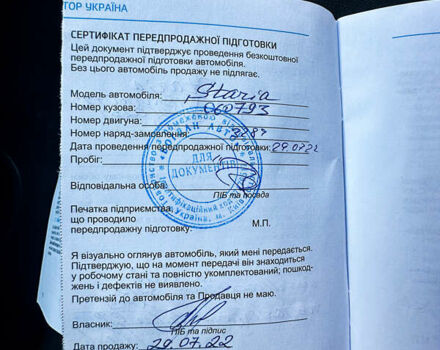 ТОР УКРАЇНА
СЕРТИФІКАТ ПЕРЕДПРОДАЖНОЇ ПІДГОТОВКИ
Цей документ підтверджує проведення безкоштовної
передпродажної підготовки автомобіля.
Без цього автомобіль продажу не підлягає.
Модель автомобіля: Staria
Номер кузова: 060793
Номер двигуна:
Номер наряд-замовлення:
Дата проведення передпродажної підготовки: 29.07.22
Пробіг:
ДЛЯ
ДОКУМЕНТІВ
Відповідальна особа:
ПІБ та посада
Печатка підприємства,
що проводило
передпродажну підготовку:
М.П.
Я візуально оглянув автомобіль, який мені передається.
Підтверджую, що на момент передачі він знаходиться
у робочому стані та повністю укомплектований; пошкод-
жень і дефектів не виявлено.
Претензій до автомобіля та Продавця не маю.
Власник:
ПІБ та підпис
Дата продажу: 29.07.22